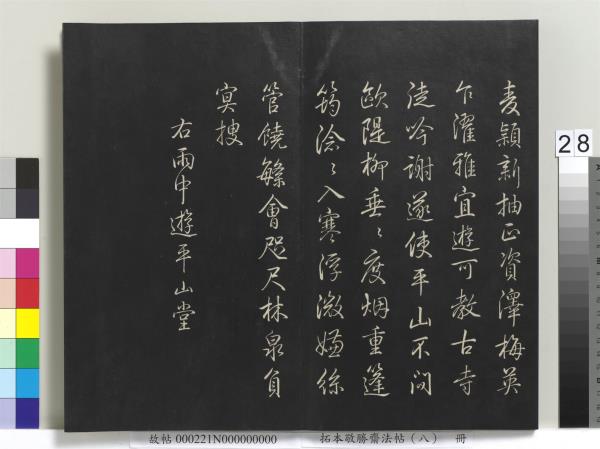 麦穎新抽正資澤梅英
乍濯雅宜遊可教古寺
徒吟謝遂使平山不問
歐隄柳垂〻度烟重篷
筠淰〻入寒浮微嫌絲
管饒緐會咫尺林泉負
冥搜
右雨中遊平山堂
28
故帖 000221N000000000 拓本敬勝齋法帖（八） 冊